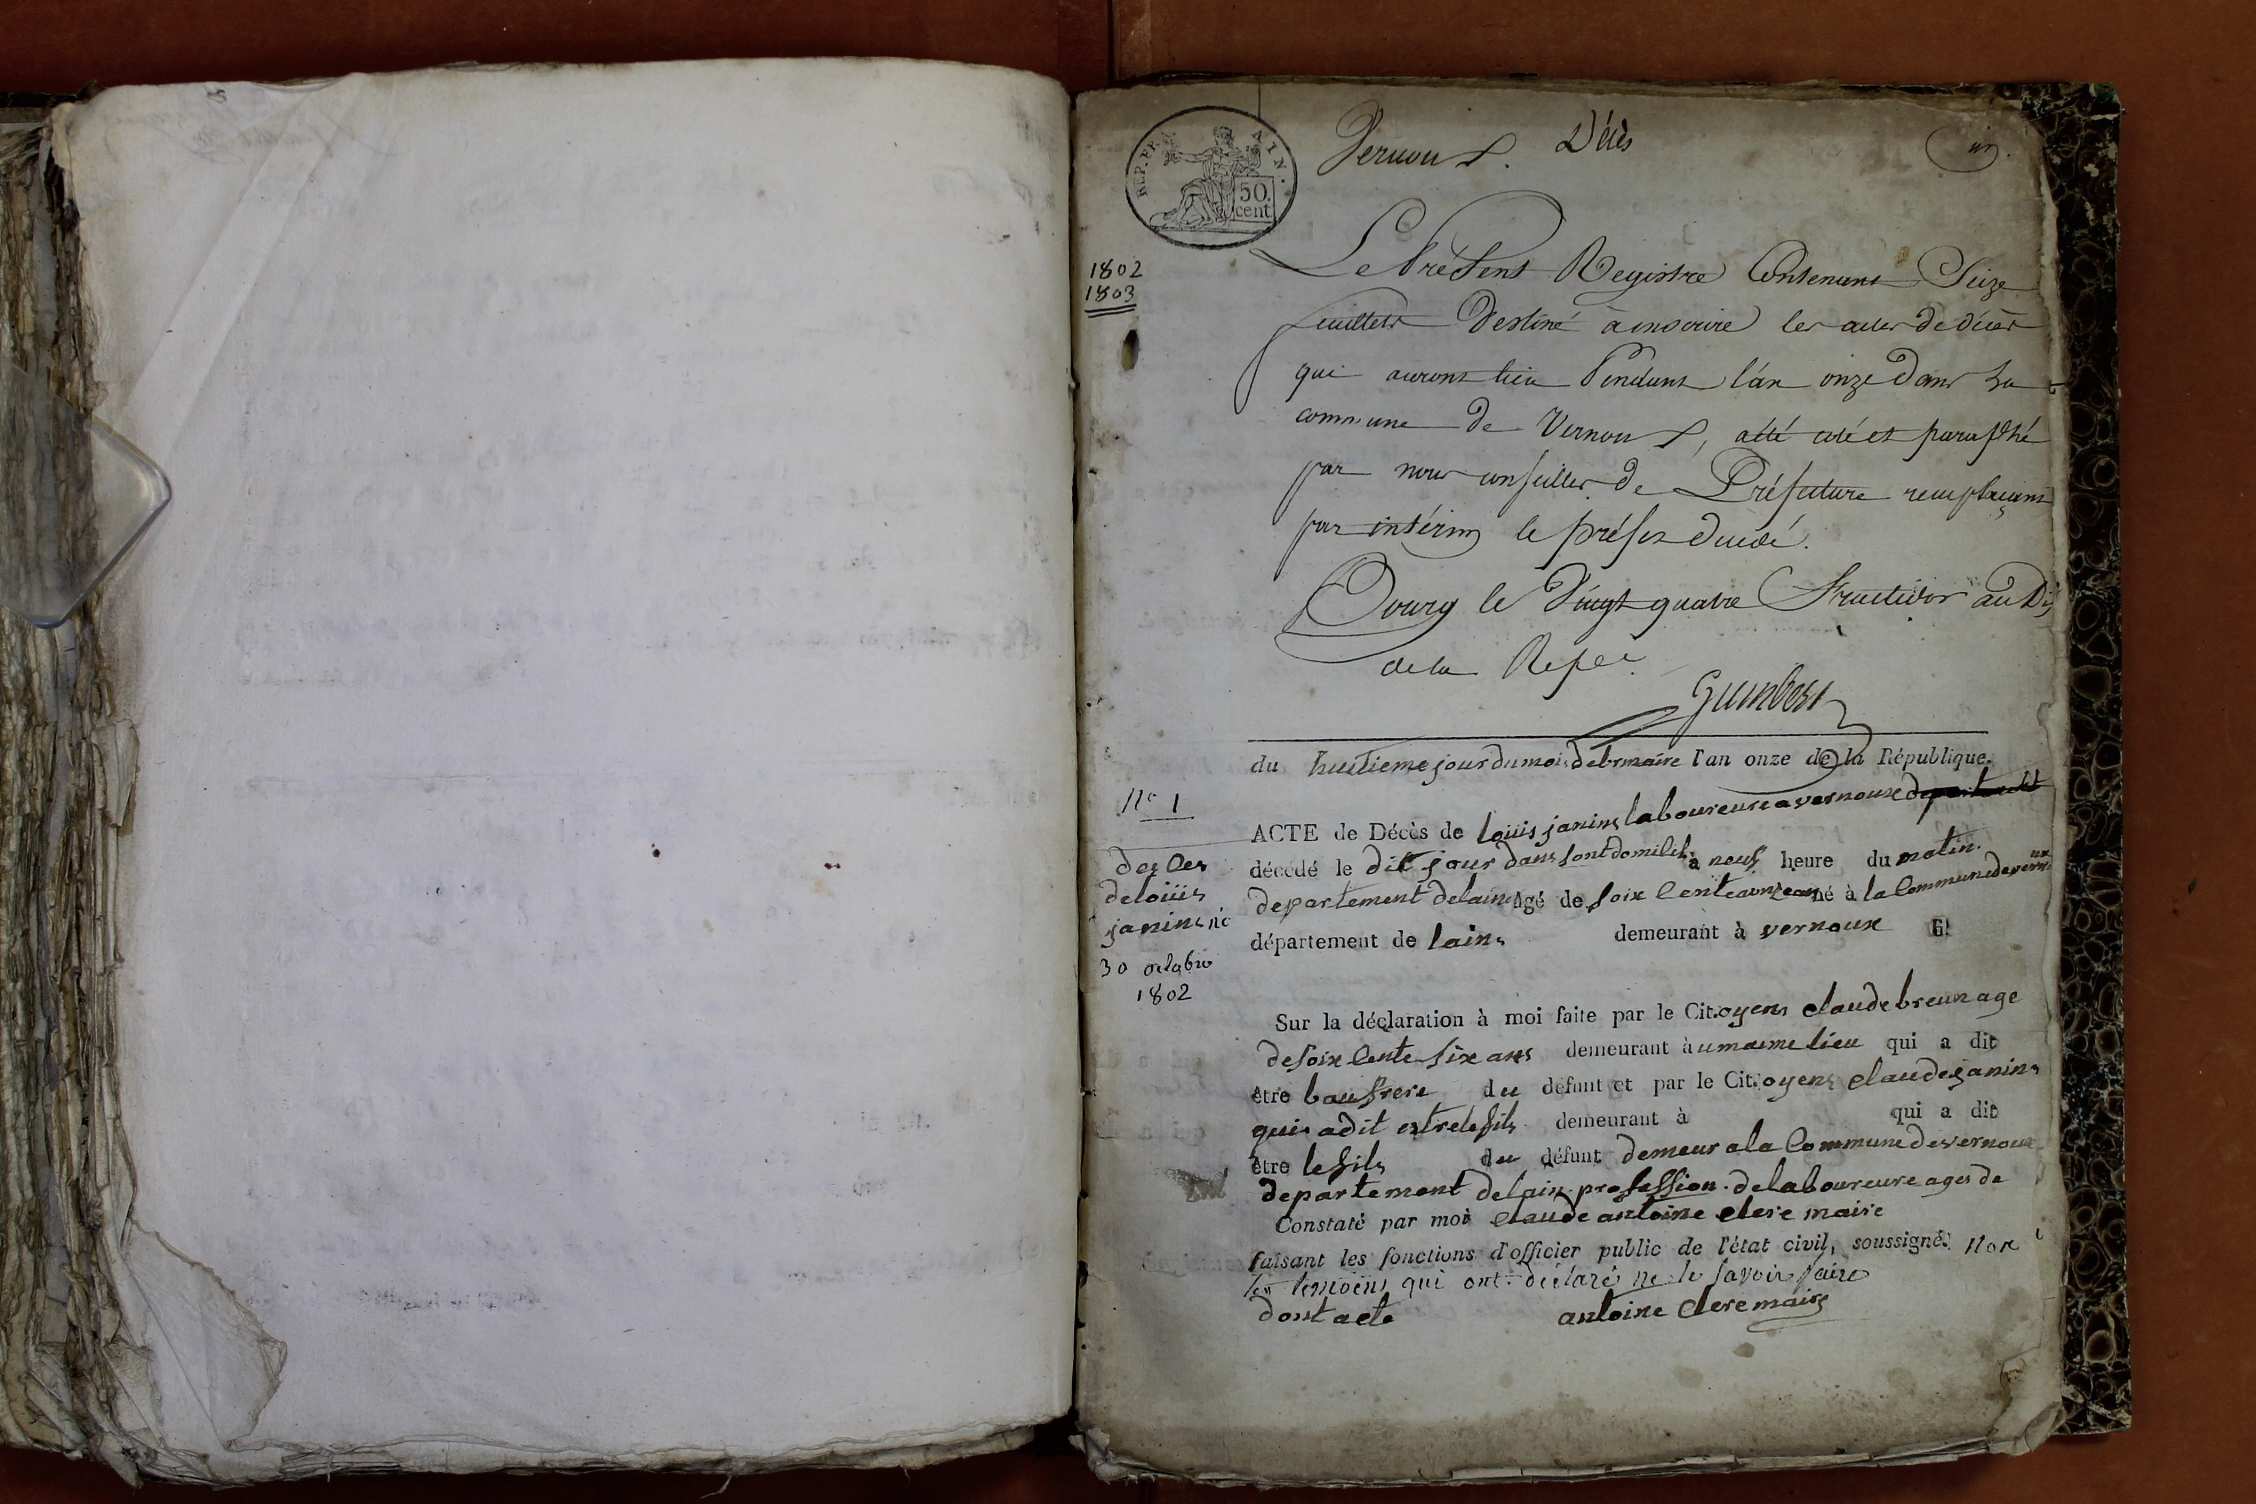 REP. FRA AIN.
50.
cent.
Vernoux. Décès
un.
1802
1803
Le Présent Registre Contenant Seize
feuillets Destiné à inscrire les actes de décès
qui auront lieu Pendant l'an onze dans la
commune de Vernoux, a été coté et paraphé
par nous conseiller de Préfecture remplaçant
par intérim le préfet décédé.
Bourg le Vingt quatre Fructidor an Dix
de la Repe.
du huitieme jour du mois de brmaire l'an onze de la République.
No 1
ACTE de Décès de loüis janins laboureure a vernoux
décédé le dit jour dans sont domicile à neuf heure du matin.
departement delains âgé de soix cente onze ans né à la Commune de vernoux
département de lains demeurant à vernoux
desces
de loüis
janins no
30 octobre
1802
Sur la déclaration à moi faite par le Citoyens claude breun age
de soix cente six ans demeurant à umaime lieu qui a dit
être baufrere du défunt et par le Citoyens claude janins
qui a dit estre le fils demeurant à qui a dit
être le fils du défunt demeur a la Commune de vernoux
departement delain profession de laboureure ages de
Constaté par moi claude antoine clere maire
faisant les fonctions d'officier public de l'état civil, soussigné. non
les temoins qui ont déclaré ne le savoir faire
dont acte antoine clere maire